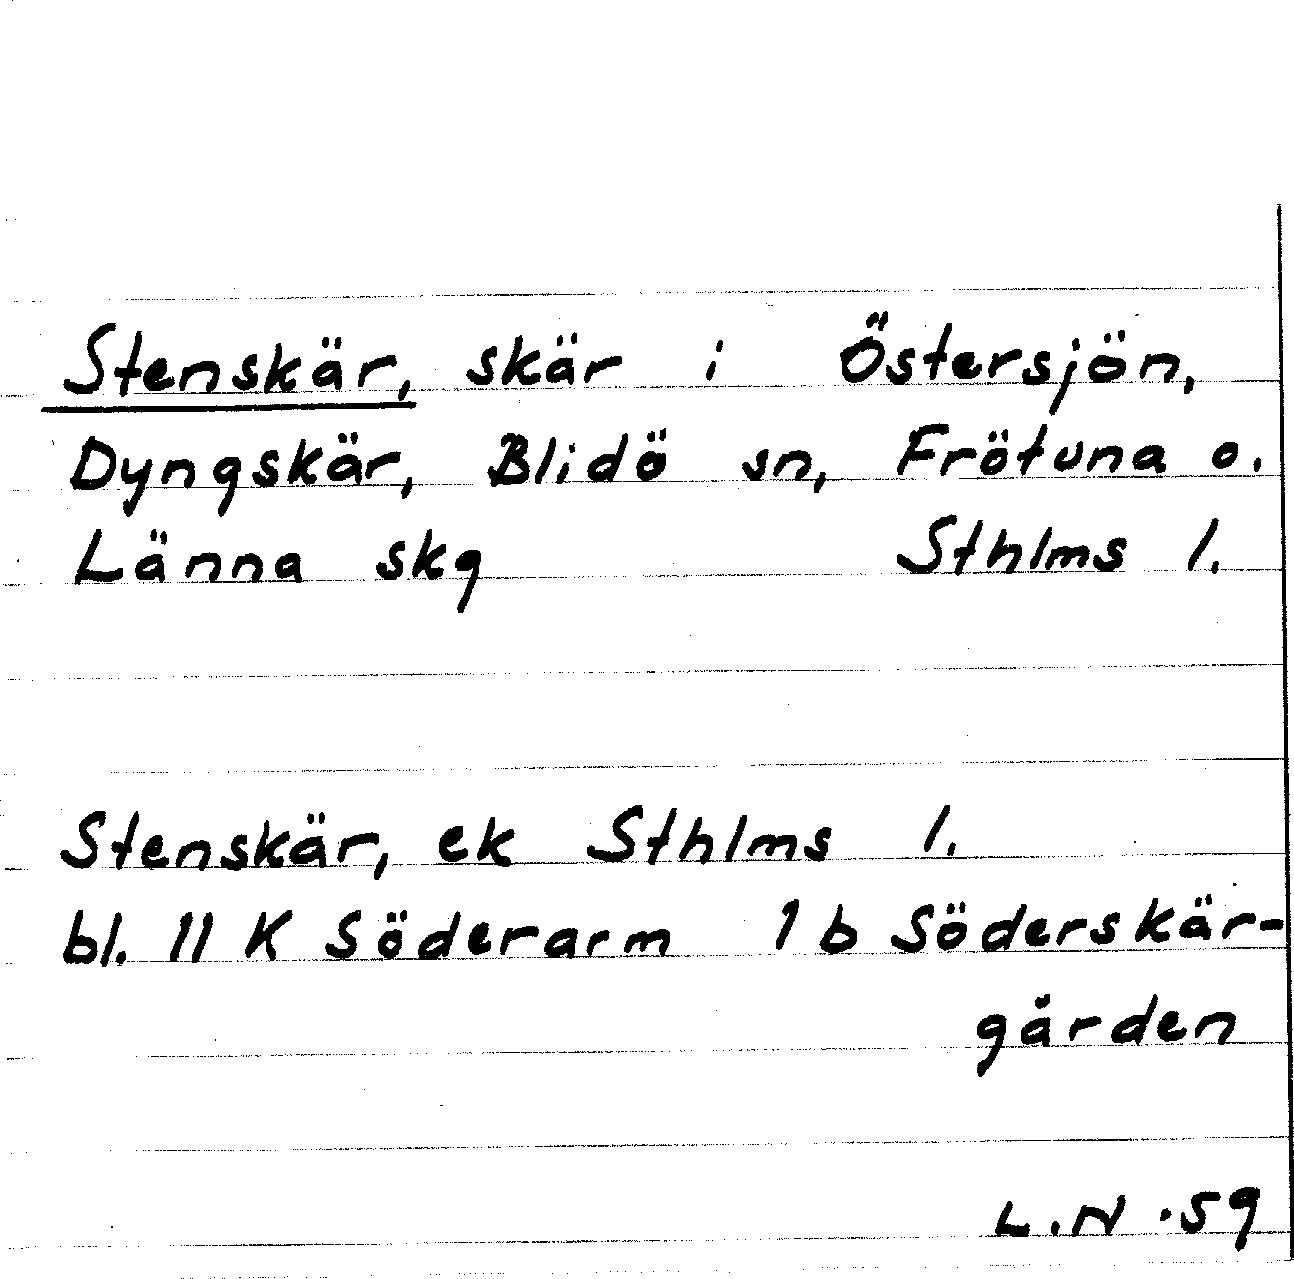 Stenskär, skär i Östersjön,
Dyngskär, Blidö sn, Frötuna o.
Länna skg Sthlms l.
Stenskär, ek Sthlms l.
bl. 11 K Söderarm 1 b Söderskär-
gården
L.N .59